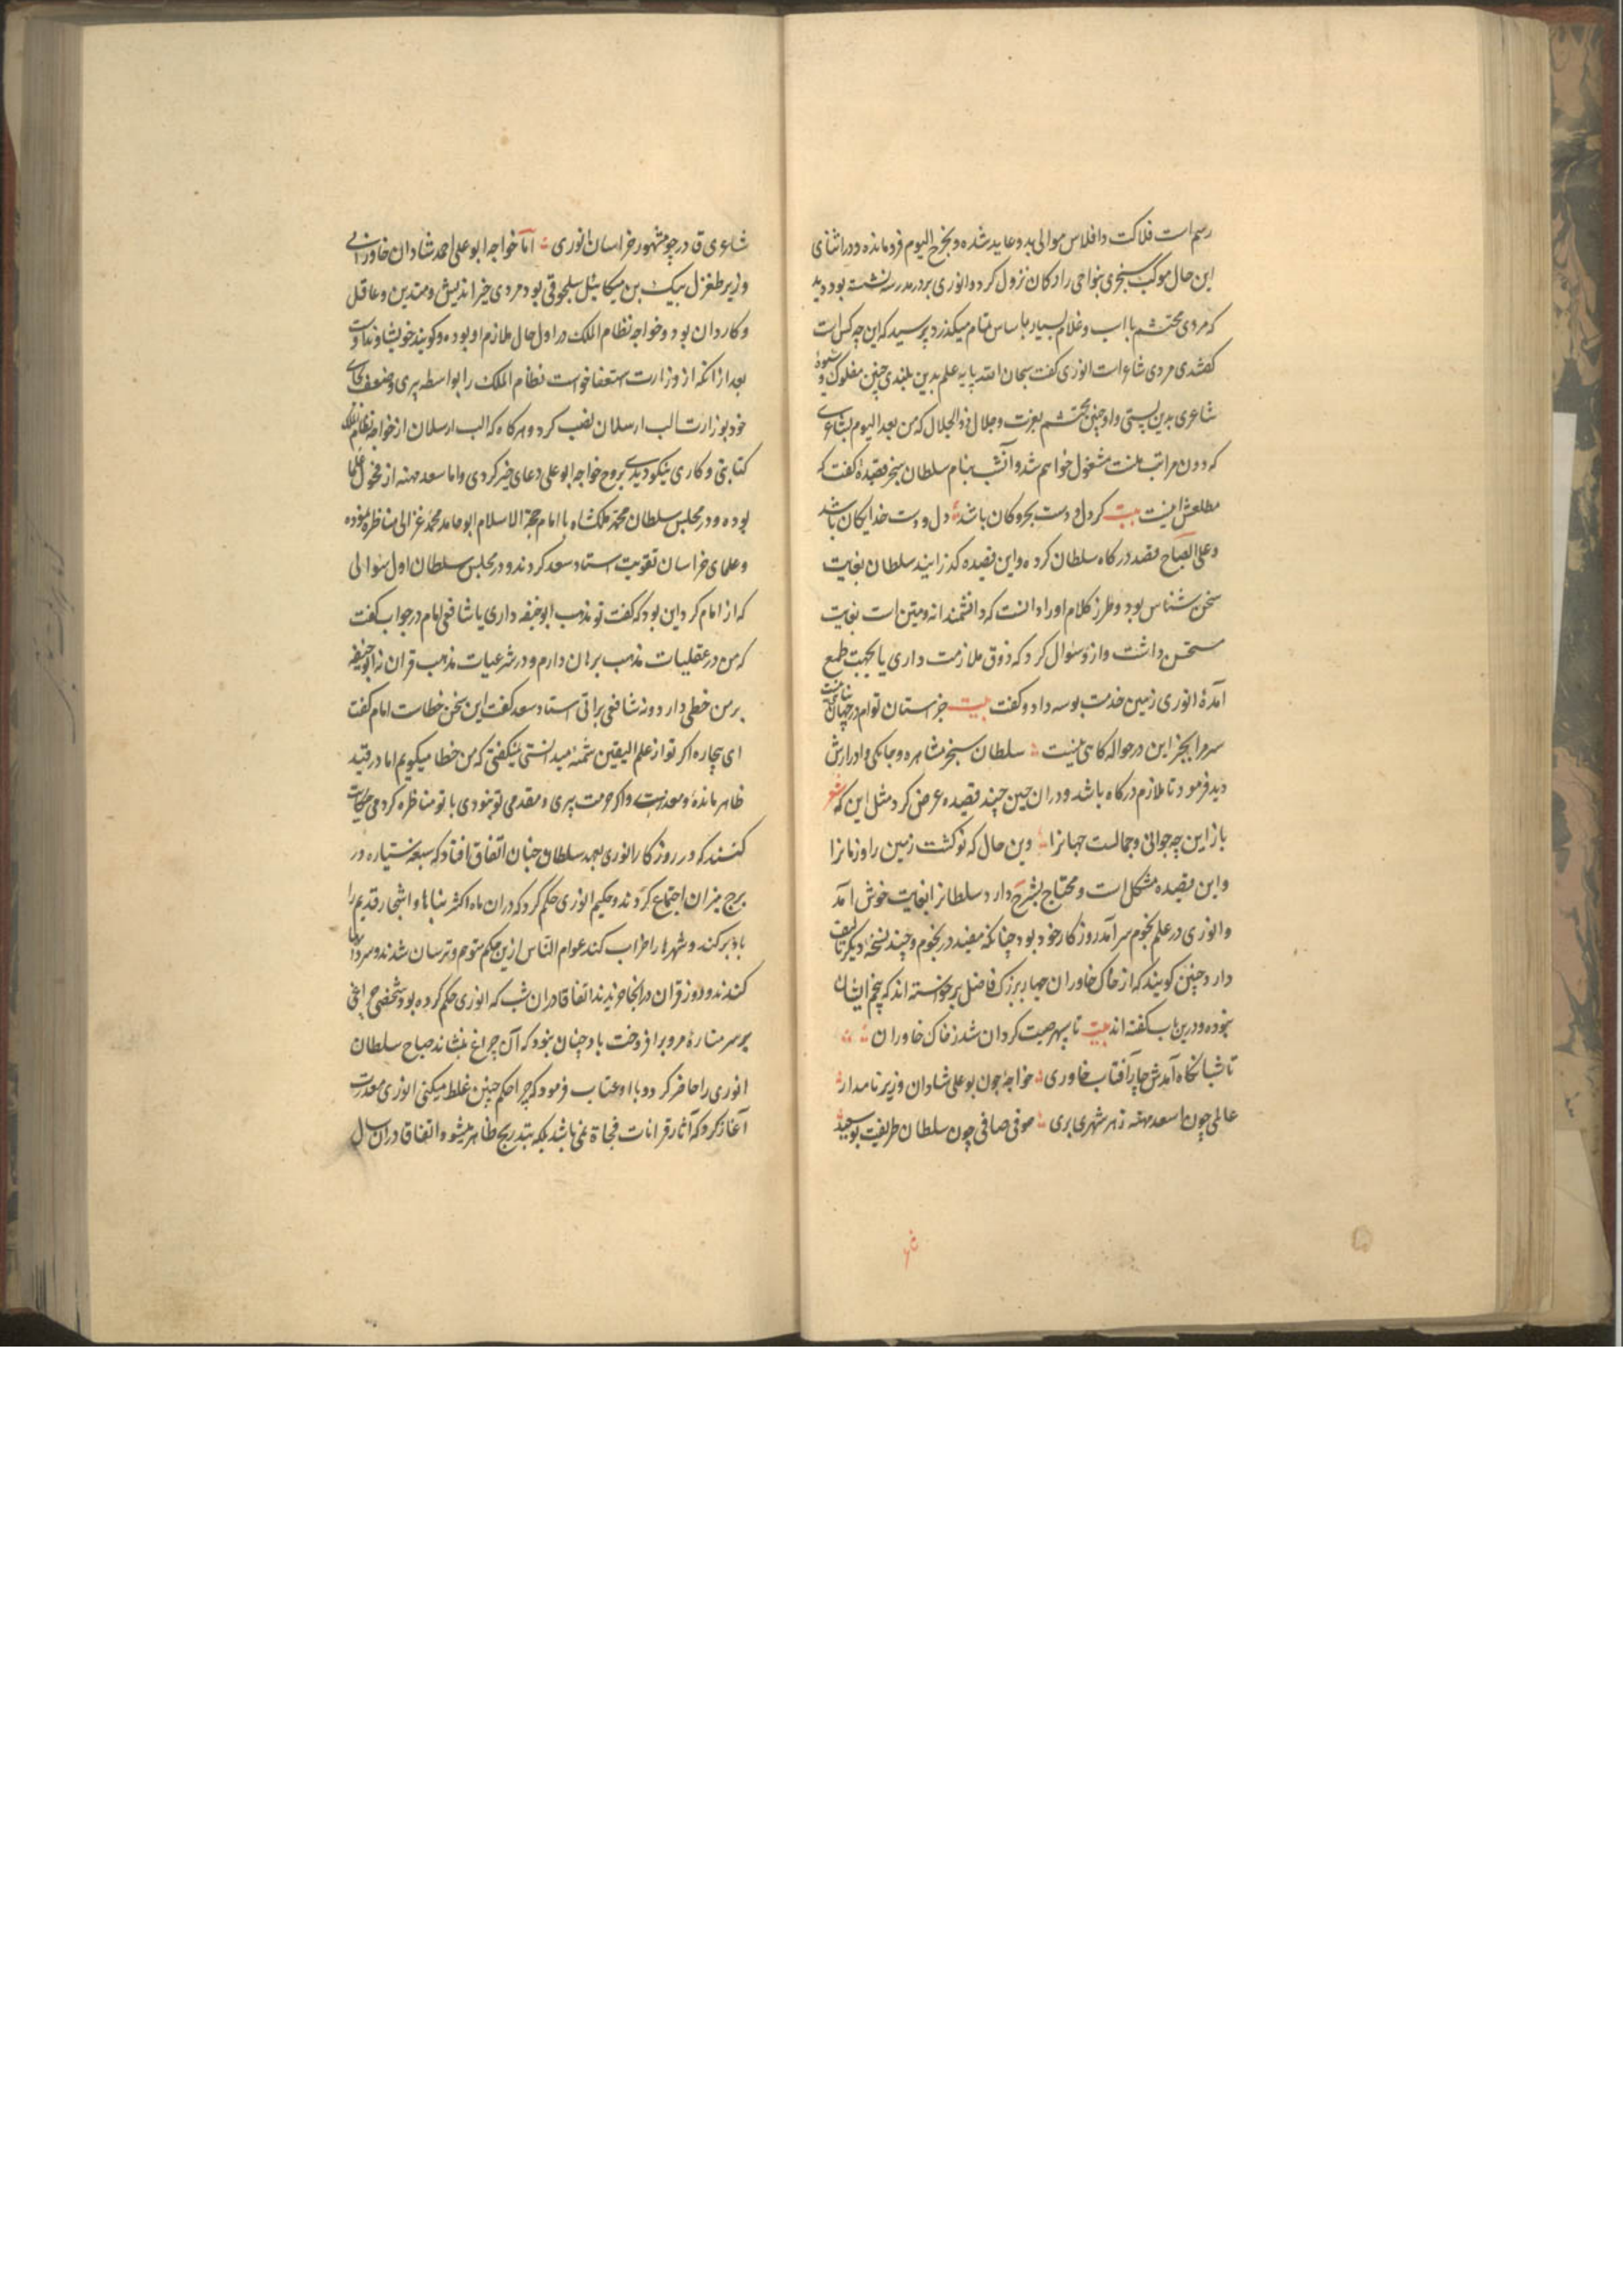 رسم است فلاکت و افلاس موالی بدو عاید شده و بخرج الیوم فرو مانده و در اثنای
این حال موکب سنجری بنواحی رادکان نزول کرد و انوری بر در مدرسه نشسته بود دید
که مردی محتشم با اسب و غلام بسیار با ساس تمام میکذرد پرسید که این چه کس است
کفتند مردی شاعر است انوری کفت سبحان الله پایه علم بدین بلندی و من چنین مفلوک و شیوهٔ
شاعری بدین پستی و او چنین محتشم بعزت و جلال ذو الجلال که من بعد الیوم بشاعری
که دون مراتب منست مشغول خواهم شد و آنشب بنام سلطان سنجر قصیدهٔ کفت که
مطلعش اینست بیت کر دل و دست بحر و کان باشد دل و دست خدایکان باشد
و علی الصباح قصد درکاه سلطان کرده و این قصیده کذرانید سلطان بغایت
سخن شناس بود و طرز کلام او را دانست که دانشمندانه و متین است بغایت
مستحسن داشت و ازو سؤال کرد که ذوق ملازمت داری یا بجهت طمع
آمدهٔ انوری زمین خدمت بوسه داد و کفت بیت جز آستان توام در جهان پناهی نیست
سر مرا بجز این در حواله کاهی نیست سلطان سنجر مشاهره و جامکی و ادرارش
دید فرمود تا ملازم درکاه باشد و دران حین چند قصیده عرض کرد مثل این که شعر
باز این چه جوانی و جمالست جهانرا وین حال که نو کشت زمین را و زمانرا
و این قصیده مشکل است و محتاج بشرح دارد سلطانرا بغایت خوش آمد
و انوری در علم نجوم سر آمد روزکار خود بود چنانکه مفید در نجوم و چند نسخهٔ دیکر تالیف
دارد و چنین کویند که از خاک خاوران چهار بزرک فاضل برخواسته اند که پنجم ایشان
نبوده و درین باب کفته اند بیت تا سپهر صیت کردان شد ز خاک خاوران
تا شبانکاه آمدش چار آفتاب خاوری خواجهٔ چون بو علی شادان وزیر نامدار
عالمی چون اسعد مهنه ز هر شهری بری صوفی صافی چون سلطان طریقت بو سعید
شاعری قادر چو مشهور خراسان انوری اما خواجه ابو علی احمد شادان خاورانی
وزیر طغرل بیک بن میکائیل سلجوقی بود مردی خیر اندیش و متدین و عاقل
و کاردان بود و خواجه نظام الملک در اول حال ملازم او بوده و کویند خویشاوند اوست
بعد از انکه از وزارت استعفا خواست نظام الملک را بواسطه پیری و ضعف بجای
خود بوزارت الب ارسلان نصب کرد و هر کاه که الب ارسلان از خواجه نظام الملک
کتابتی و کاری نیکو دیدی بروح خواجه ابو علی دعای خیر کردی و اما سعد مهنه از فحول علما
بوده و در مجلس سلطان محمد ملکشاه با امام حجة الاسلام ابو حامد محمد غزالی مناظره نموده
و علمای خراسان تقویت استاد سعد کردند و در مجلس سلطان اول سؤالی
که از امام کرد این بود که کفت تو مذهب ابو حنیفه داری یا شافعی امام در جواب کفت
که من در عقلیات مذهب برهان دارم و در شرعیات مذهب قران نه ابو حنیفه
بر من خطی دارد و نه شافعی براتی استاد سعد کفت این سخن خطاست امام کفت
ای بیچاره اکر تو از علم الیقین شمهٔ میدانستی نمیکفتی که من خطا میکویم اما در قید
ظاهر ماندهٔ و معذوری و اکر حرمت پیری و مقدمی تو نبودی با تو مناظره کردمی حکایت
کنند که در روزکار انوری بعهد سلطان چنان اتفاق افتاد که سبعه سیاره در
برج میزان اجتماع کردند و حکیم انوری حکم کرد که دران ماه اکثر بناها و اشجار قدیم را
باد برکند و شهرها را خراب کند عوام الناس ازین حکم متوهم و ترسان شدند و سردابها
کندند و روز قران در انجا خزیدند اتفاقا دران شب که انوری حکم کرده بود شخصی چراغی
بر سر منارهٔ مرو برافروخت باد چندان نبود که آن چراغ بنشاند صباح سلطان
انوری را حاضر کرد و با او عتاب فرمود که چرا حکم چنین غلط میکنی انوری معذرت
آغاز کرد که آثار قرانات فجاة نمی باشد بلکه بتدریج ظاهر میشود اتفاقا دران سال